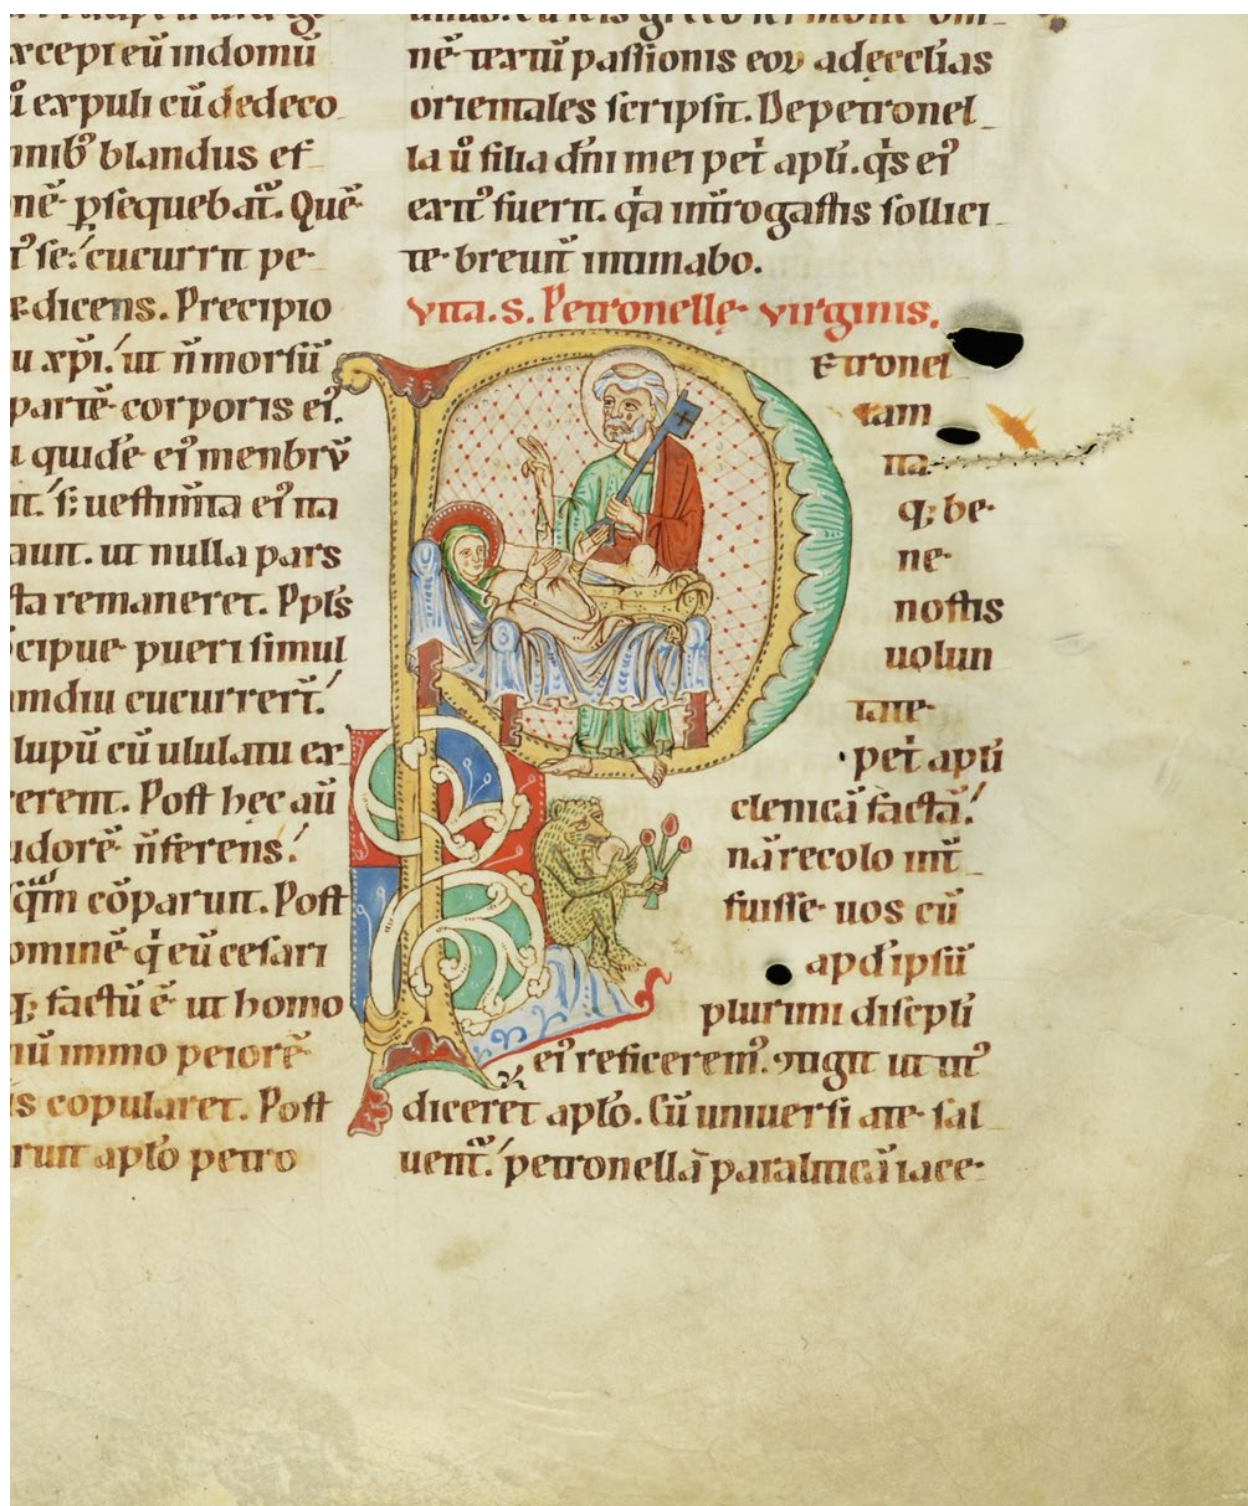 xcepit eū in domū
i expuli cū dedeco
mnib᷒ blandus ef
nē p̱sequebat̄. Quē
t᷒ se:́ cucurrit pe-
ę dicens. Precipio
u xp̄i.́ ut n̄ morsū
partē corporis ei᷒.
a quidē ei᷒ menbrū
it.́ s; uestim̄ta ei᷒ ita
auit. ut nulla pars
sta remaneret. Ppl̄s
cipue pueri simul
amdiu cucurrert̄.́
lupū cū ululatu ex
erent. Post hęc aū
udorē n̄ ferens.́
sq̄m cōparuit. Post
ominē q̇ eū cesari
q; factū ē ut homo
nū immo peiorē
is copularet. Post
runt apl̄o petro
nē textū passionis eoꝝ ad ęccl̄ias
orientales scripsit. De petronel
la ū filia dn̄i mei pet̄ apl̄i. q̇s ei᷒
exit᷒ fuerit. q̇a int̄rogastis sollici
te breuit̄ intimabo.
Vita. S. Petronellę virginis.
Etronel
lam
ita
q; be-
ne
nostis
uolun
tate
pet̄ apl̄i
clenicā factā.́
nā recolo int̄
fuisse uos cū
apd̄ ipsū
plurimi discipl̄i
ei᷒ reficerem᷒. ꝯtigit ut tit᷒
diceret apl̄o. Cū uniuersi a te sal
uent̄.́ petronellā paraliticā iace-